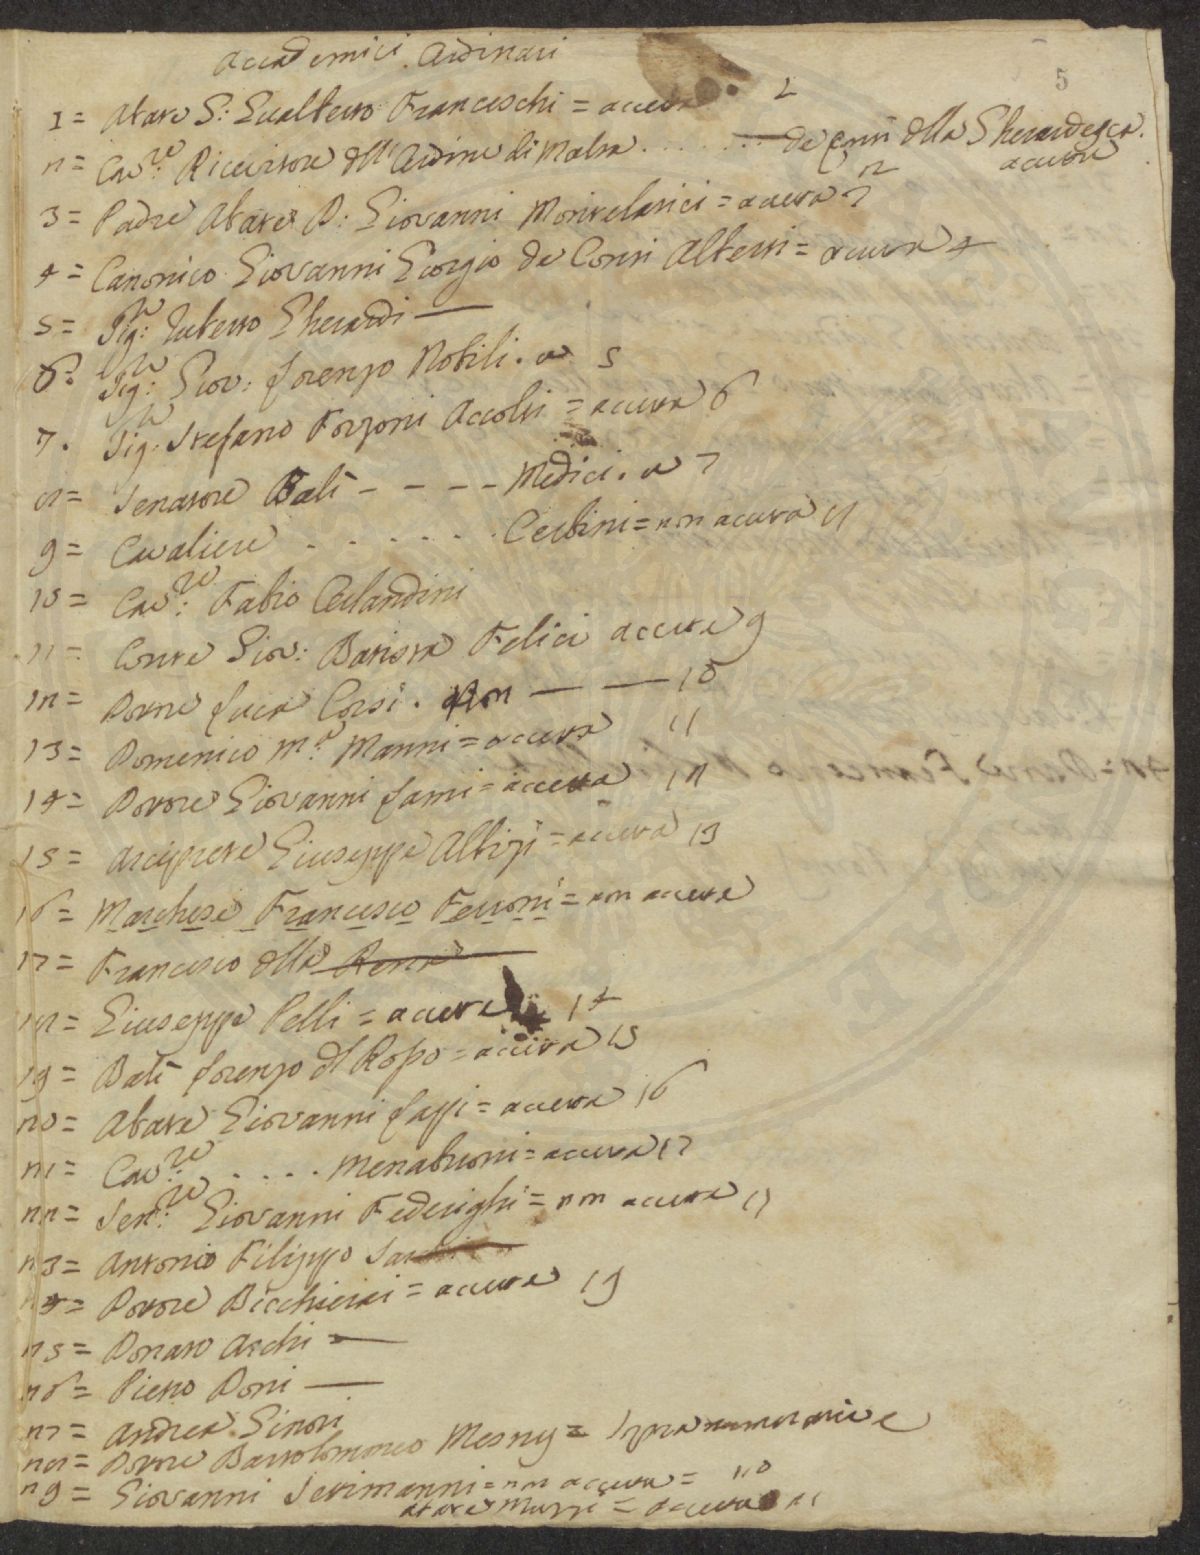 Accademici Ordinari
5
1= Abate S: Gualterio Franceschi = accetta 1
2= Cav.re Ricevitore dell'Ordine di Malta . . . . . . . de Conti della Gherardesca.
accetta
3= Padre Abate D: Giovanni Montelatici = accetta 3
4= Canonico Giovanni Giorgio de Conti Alberti = accetta 4
5= Sig:re Gherardi —
6= Sig:re Giov: Lorenzo Nobili. a 5
7. Sig:re Stefano Forzoni Accolti = accetta 6
8= Senatore Balì - - - - Medici. a 7
9= Cavaliere . . . . . . Cerbini = non accetta
10= Cav:re Fabio Orlandini
11= Conte Giov: Batista Felici accetta 9
12= Dottore Luca Corsi. non — — 10
13= Domenico M.a Manni = accetta 11
14= Dottore Giovanni Lami = accetta 12
15= Arciprete Giuseppe Albizi = accetta 13
16= Marchese Francesco Ferroni = non accetta
17= Francesco della Rena
18= Giuseppe Pelli = accetta 14
19= Balì Lorenzo del Rosso = accetta 15
20= Abate Giovanni Lappi = accetta 16
21= Cav:re . . . . Menabuoni = accetta 17
22= Sen:re Giovanni Federighi = non accetta
23= Antonio Filippo
24= Dottore Bicchierai = accetta 19
25= Donato Archi —
26= Pietro Doni —
27= Andrea Ginori
28= Dottore Bartolomeo Mesny = sopranumerario e
29= Giovanni Setimanni = non accetta = 20
Abate Muzzi = accetta 21